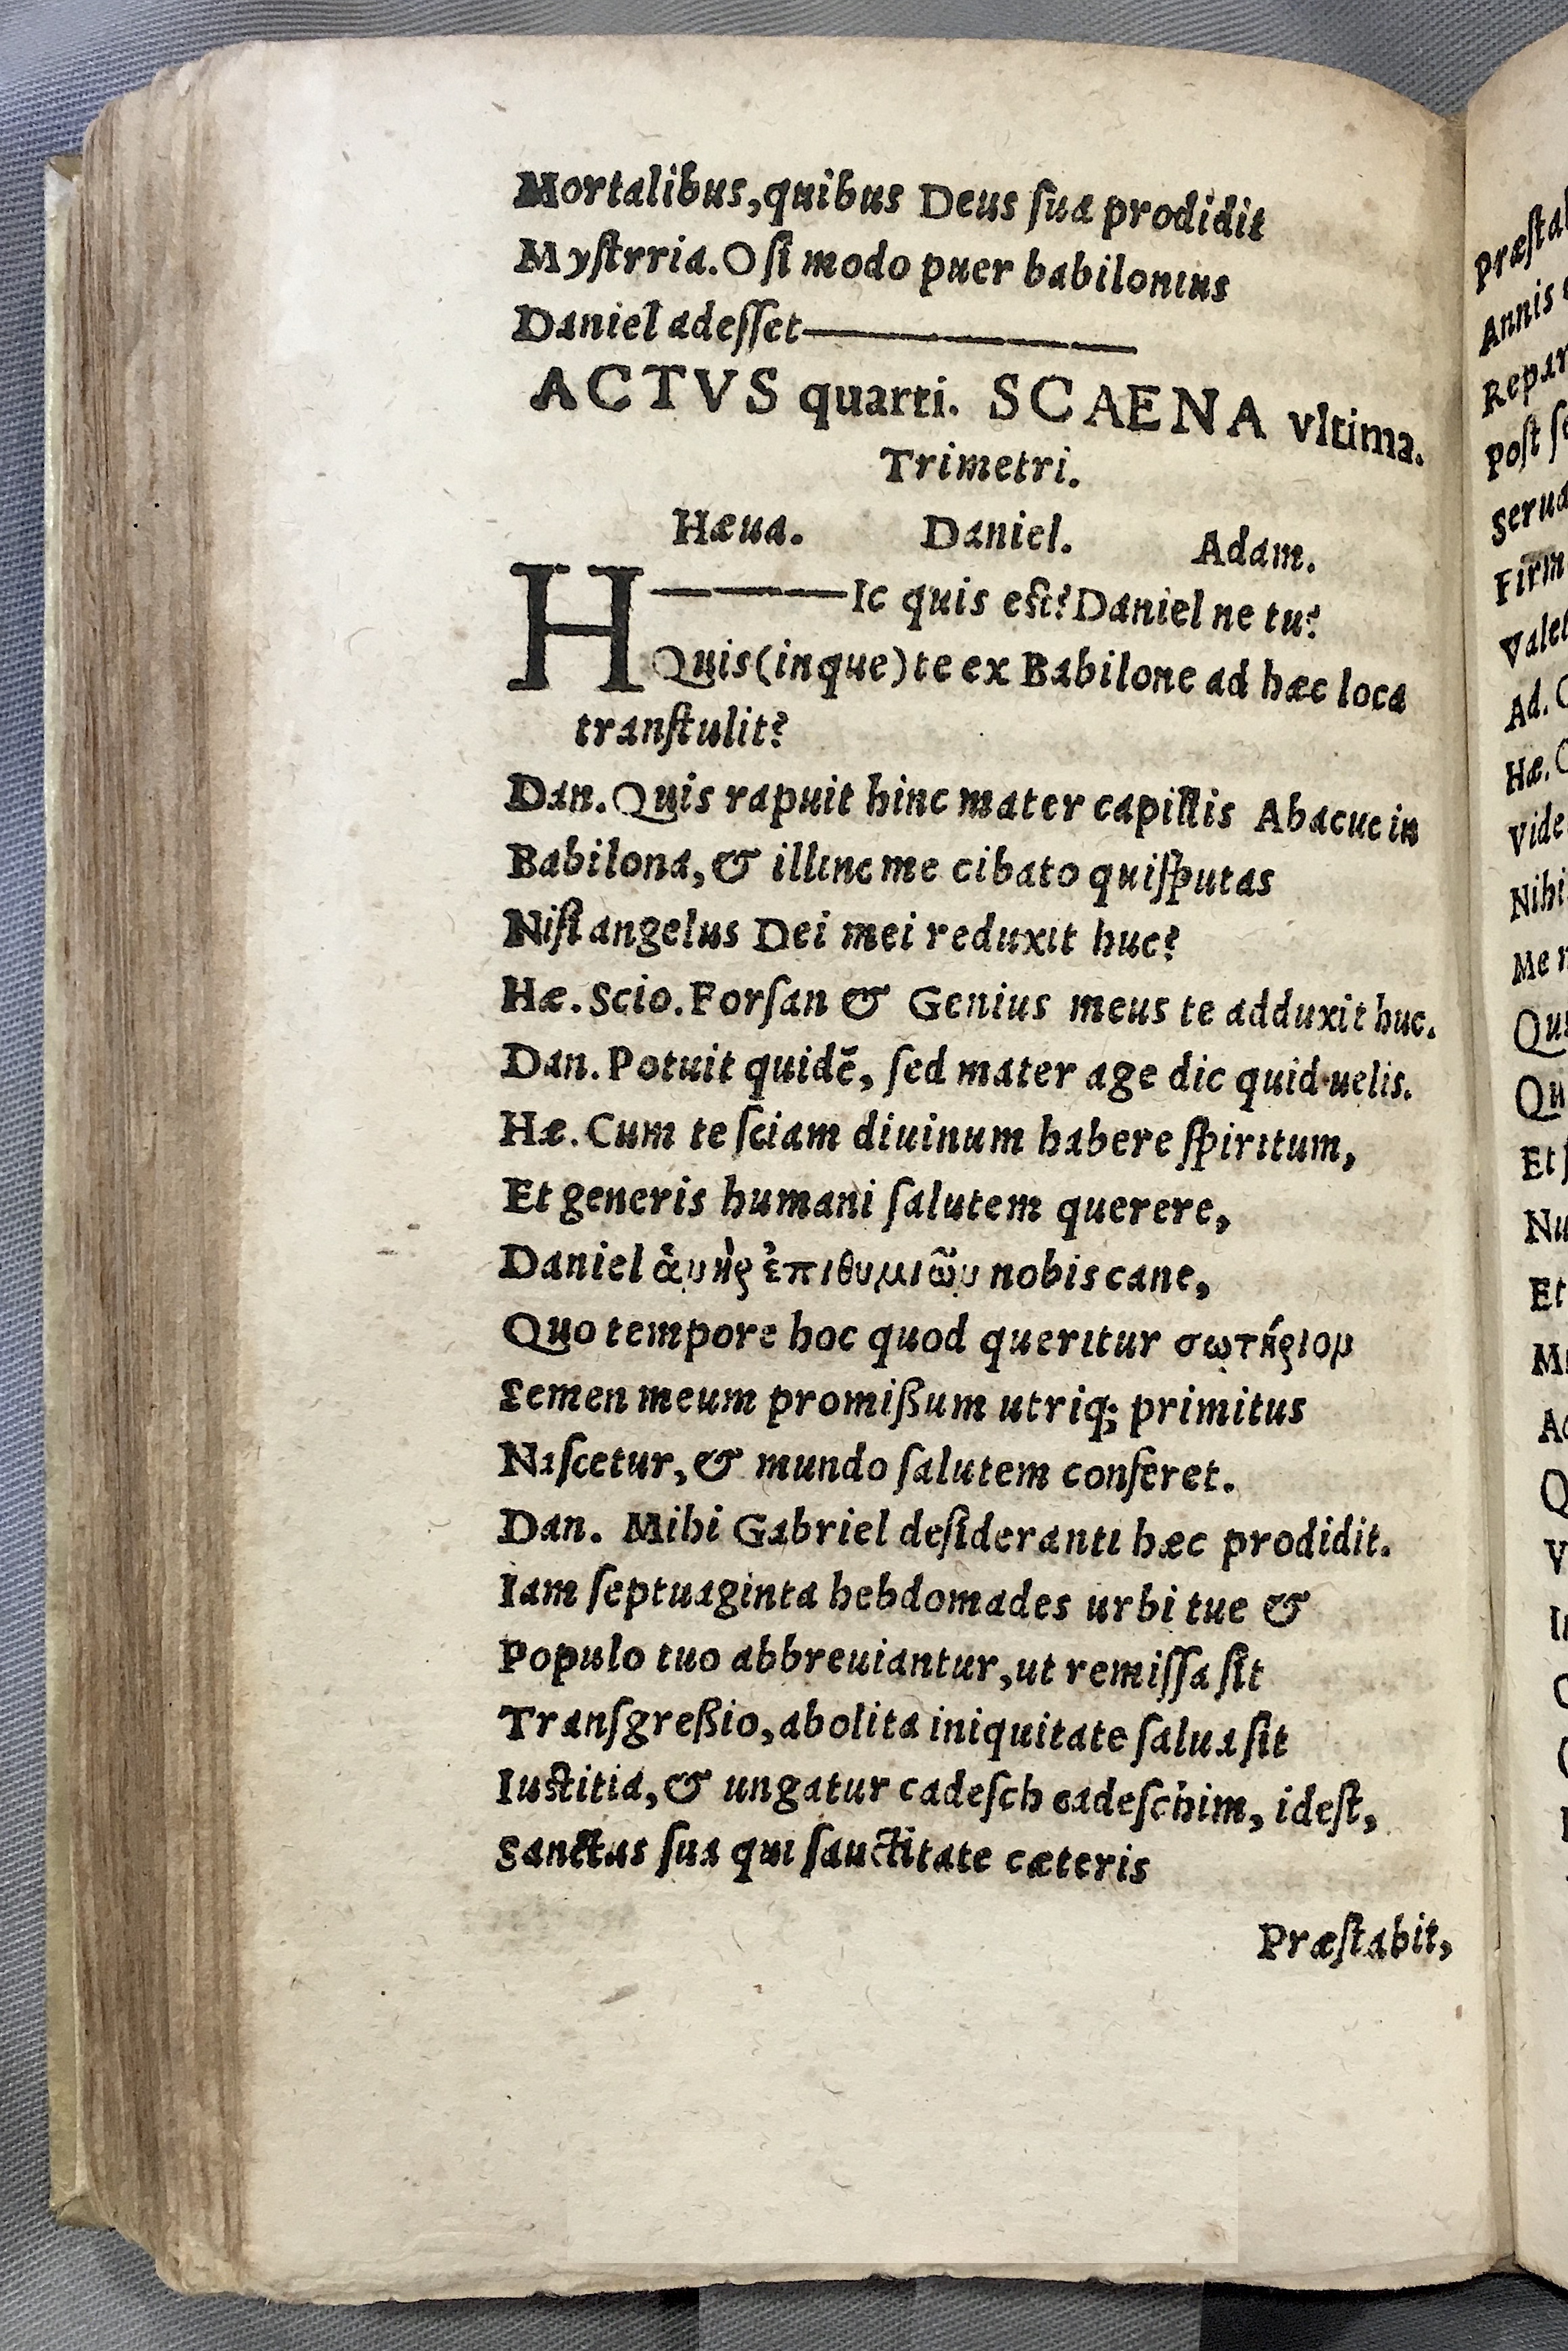 Mortalibus, quibus Deus ſua prodidit
Myſtrria. O ſi modo puer babilonius
Daniel adeſſet————
ACTVS quarti. SCAENA vltima.
Trimetri.
Hæua. Daniel. Adam.
H———Ic quis eſt? Daniel ne tu?
Quis (inque) te ex Babilone ad hæc loca
tranſtulit?
Dan. Quis rapuit hinc mater capillis Abacuc in
Babilona, & illinc me cibato quiſputas
Niſi angelus Dei mei reduxit huc?
Hæ. Scio. Forſan & Genius meus te adduxit huc.
Dan. Potuit quidē, ſed mater age dic quid uelis.
Hæ. Cum te ſciam diuinum habere ſpiritum,
Et generis humani ſalutem querere,
Daniel ἀνὴρ ἐπιθυμιῶν nobis cane,
Quo tempore hoc quod queritur σωτήριον
Semen meum promißum utriq; primitus
Naſcetur, & mundo ſalutem conferet.
Dan. Mihi Gabriel deſideranti hæc prodidit.
Iam ſeptuaginta hebdomades urbi tue &
Populo tuo abbreuiantur, ut remiſſa ſit
Tranſgreßio, abolita iniquitate ſalua ſit
Iuſtitia, & ungatur cadeſch cadeſchim, ideſt,
Sanctus ſua qui ſauctitate cæteris
Præſtabit,
Præſta
Annis
Repar
Poſt ſe
Serua
Firm
Valet
Ad.
Hæ.
Vide
Nihi
Me
Qui
Qu
Et
Nu
Et